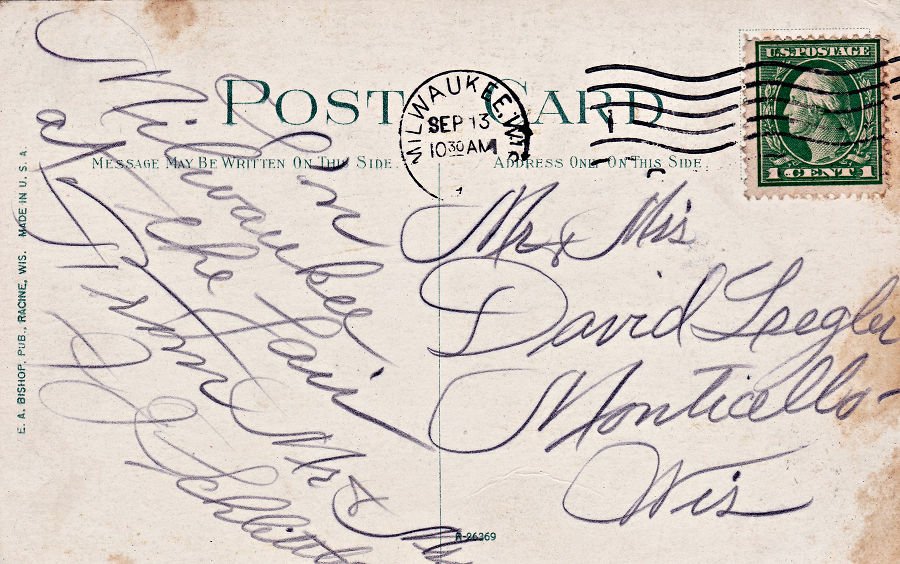 POST CARD
MESSAGE MAY BE WRITTEN ON THIS SIDE.
ADDRESS ONLY ON THIS SIDE.
MILWAUKEE, WIS.
SEP 13
10 30 AM
U.S. POSTAGE
1 CENT 1
In
Milwaukee
at the Fair
From Mr &
Mr & Mrs
David
Monticello-
Wis
E. A. BISHOP, PUB., RACINE, WIS. MADE IN U. S. A.
R-26369